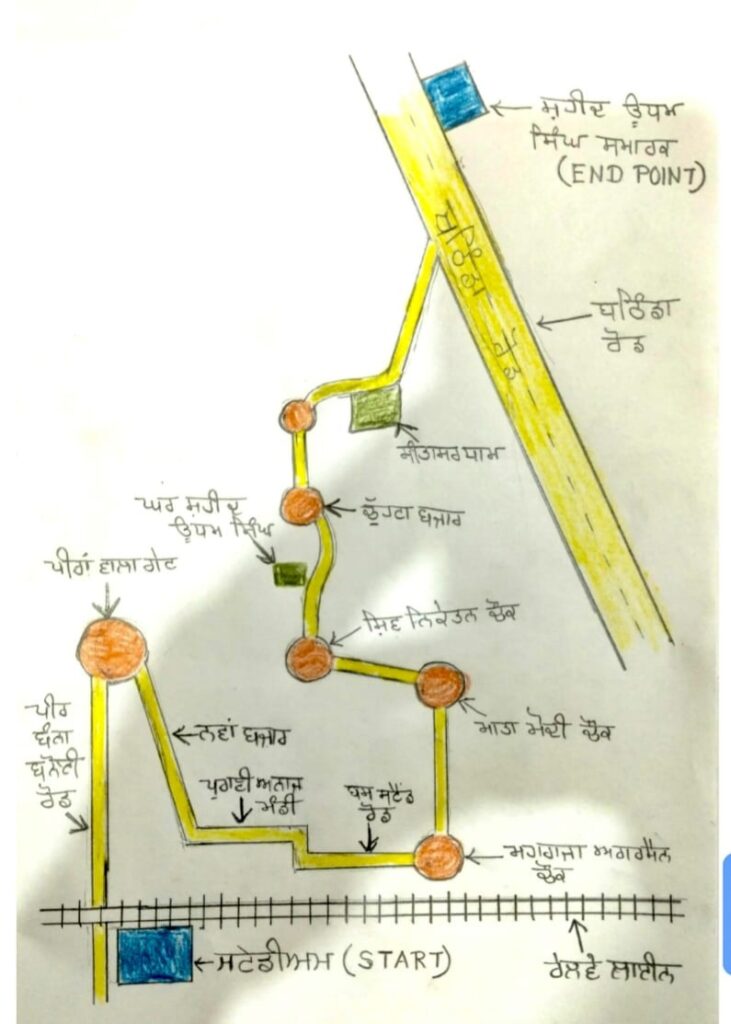 ਸ਼ਹੀਦ ਊਧਮ
ਸਿੰਘ ਸਮਾਰਕ
(END POINT)
ਬਠਿੰਡਾ ਰੋਡ
ਬਠਿੰਡਾ
ਰੋਡ
ਸੀਤਾਸਰ ਧਾਮ
ਘਰ ਸ਼ਹੀਦ
ਊਧਮ ਸਿੰਘ
ਬਜਾਰ
ਪੀਰਾਂ ਵਾਲਾ ਗੇਟ
ਸ਼ਿਵ ਨਿਕੇਤਨ ਚੌਂਕ
ਪੀਰ
ਬੰਨਾ
ਬਨੋਈ
ਰੋਡ
ਨਵਾਂ ਬਜਾਰ
ਮਾਤਾ ਮੋਦੀ ਚੌਂਕ
ਪੁਰਾਣੀ ਅਨਾਜ
ਮੰਡੀ
ਬਸ ਸਟੈਂਡ
ਰੋਡ
ਮਹਾਰਾਜਾ ਅਗਰਸੈਨ
ਚੌਂਕ
ਸਟੇਡੀਅਮ (START)
ਰੇਲਵੇ ਲਾਈਨ